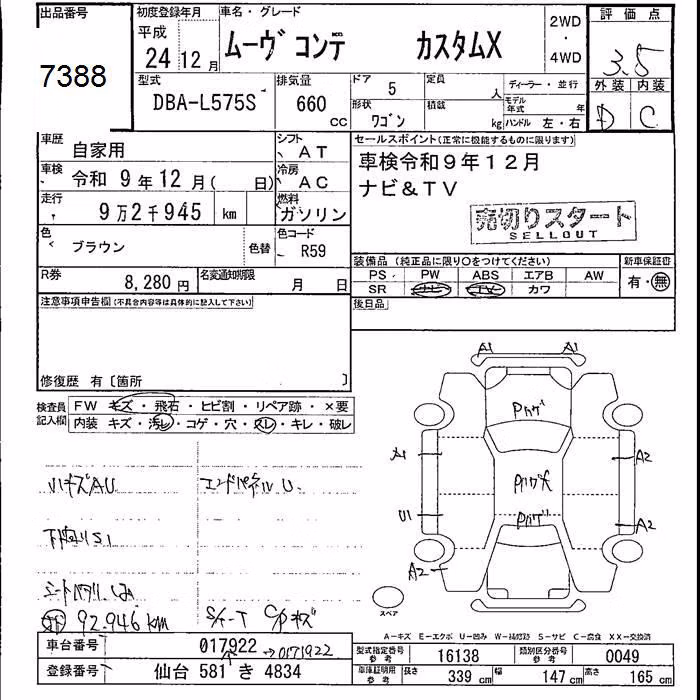 出品番号
7388
初度登録年月
平成
24 12月
車名・グレード
ムーヴ コンテ カスタムX
2WD
・
4WD
評価点
3.5
外装 内装
D C
型式
DBA-L575S
排気量
660 cc
ドア 5
形状 ワゴン
定員 人
積載 kg
ディーラー・並行
モデル年式 年
ハンドル 左・右
車歴 自家用
シフト AT
車検 令和 9年12月( 日)
冷房 AC
走行 9万2千945 km
燃料 ガソリン
色 ブラウン 色替
色コード R59
R券 8,280円
名変通知期限 月 日
セールスポイント(正常に機能するものに限ります)
車検令和9年12月
ナビ&TV
売切りスタート
SELLOUT
装備品(純正品に限り○をつけてください)
PS PW ABS エアB AW
SR ナビ TV カワ
新車保証書
有・無
後日品
注意事項申告欄(不具合内容等は具体的に記入して下さい)
修復歴 有〔箇所 〕
検査員記入欄
FW キズ・飛石・ヒビ割・リペア跡・×要
内装 キズ・汚レ・コゲ・穴・スレ・キレ・破レ
小キズAU エンドパネルU
下廻りS1
92.946km
A1 A1
A1
A2
U1
A2
A2
スペア
A-キズ E-エクボ U-凹み W-補修跡 S-サビ C-腐食 XX-交換済
車台番号 017922 → 0171922
登録番号 仙台 581 き 4834
型式指定番号 参考 16138
類別区分番号 参考 0049
車庫証明用 参考 長さ 339 cm 幅 147 cm 高さ 165 cm